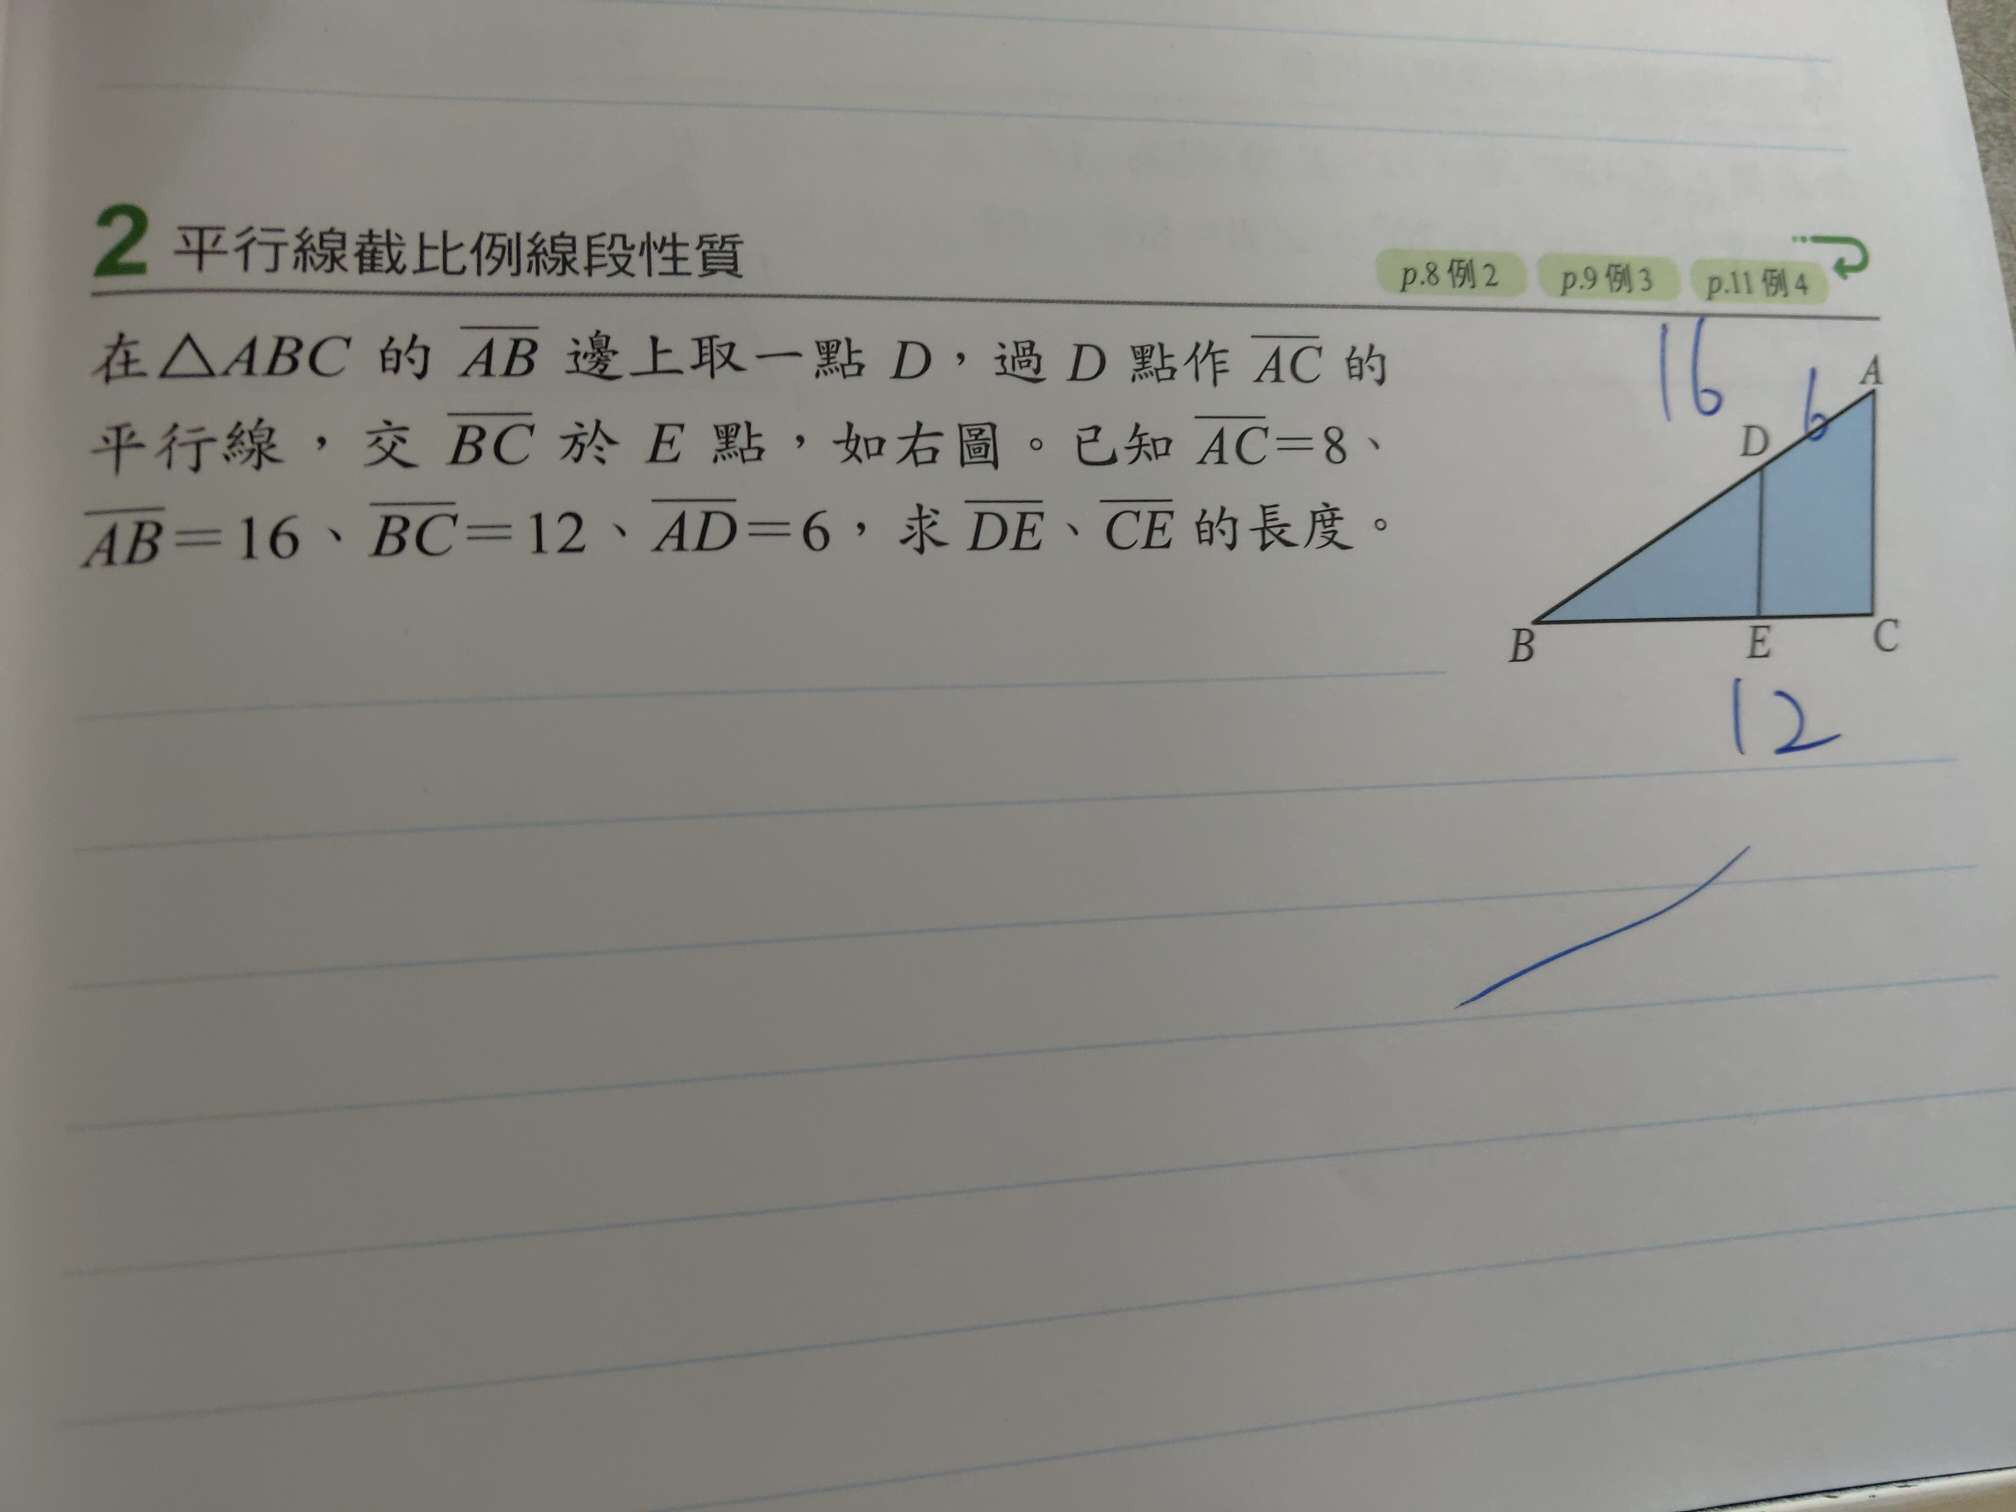 2 平行線截比例線段性質
p.8 例 2 p.9 例 3 p.11 例 4
在△ABC 的 AB 邊上取一點 D，過 D 點作 AC 的
平行線，交 BC 於 E 點，如右圖。已知 AC=8、
AB=16、BC=12、AD=6，求 DE、CE 的長度。
16
6
A
D
B
E
C
12